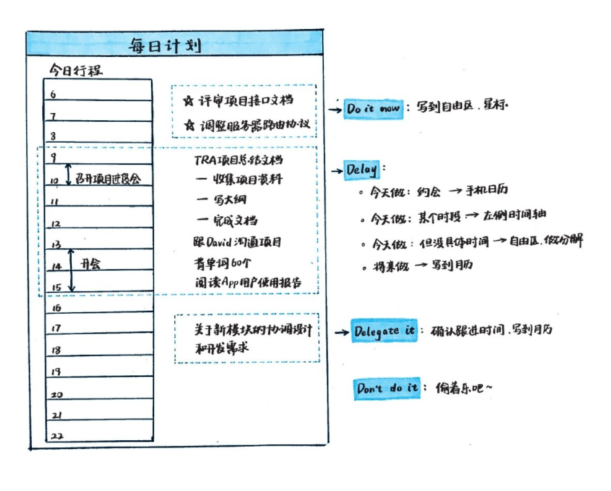 每日计划
今日行程
6
7
8
9
10 召开项目进度会
11
12
13
14 开会
15
16
17
18
19
20
21
22
☆ 评审项目接口文档
☆ 调整服务器路由协议
TRA项目总结文档
— 收集项目资料
— 写大纲
— 完成文档
跟David沟通项目
背单词60个
阅读App用户使用报告
关于新模块的协调设计
和开发需求
Do it now : 写到自由区.星标.
Delay :
今天做: 约会 → 手机日历
今天做: 某个时段 → 左侧时间轴
今天做: 但没具体时间 → 自由区.做分解
将来做 → 写到月历
Delegate it : 确认跟进时间.写到月历
Don't do it : 偷着乐吧~